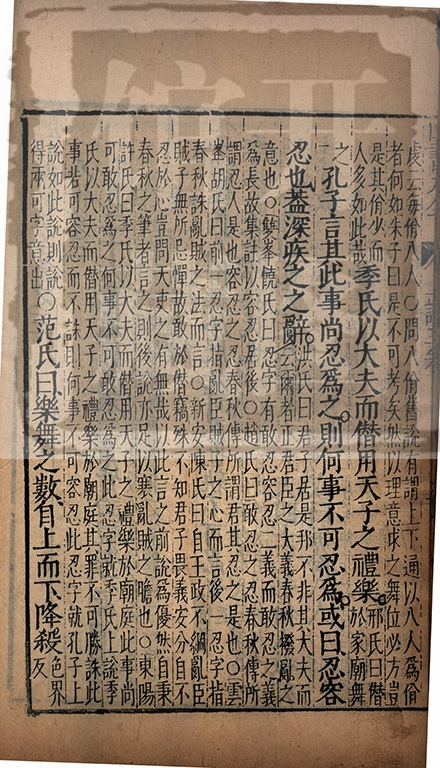 處云每佾八人○問八佾舊說有謂上下通以八人爲佾
者何如朱子曰是不可考矣然以理意求之舞位必方豈
是其佾少而
人多如此哉
季氏以大夫而僭用天子之禮樂
邢氏曰僭
於家廟舞
之
孔子言其此事尚忍爲之則何事不可忍爲或曰忍容
忍也蓋深疾之之辭
洪氏曰君子居是邦不非其大夫而
云爾者正君臣之大義春秋撥亂之
意也○雙峯饒氏曰忍字有敢忍容忍二義而敢忍之義
爲長故集註以容忍居後○趙氏曰敢忍之忍春秋傳所
謂忍人是也容忍之忍春秋傳所謂君其忍之是也○雲
峯胡氏曰前一忍字指亂臣賊子之心而言後一忍字指
春秋誅亂賊之法而言○新安陳氏曰自王政不綱亂臣
賊子無所忌憚故敢於僭竊殊不知君子畏義安分自不
忍於心豈問天吏之有無哉以此言之前說爲優然自秉
春秋之筆者言之則後說亦足以寒亂賊之膽也○東陽
許氏曰季氏以大夫而僭用天子之禮樂於朝庭此事尚
可敢忍爲之何事不可敢忍爲之此忍字就季氏上說季
氏以大夫而僭用天子之禮樂於廟庭其罪不可勝誅此
事若可容忍而不誅則何事不可容忍此忍字就孔子上
說如此說則說
得兩可字意出
○范氏曰樂舞之數自上而下降殺
色界
反